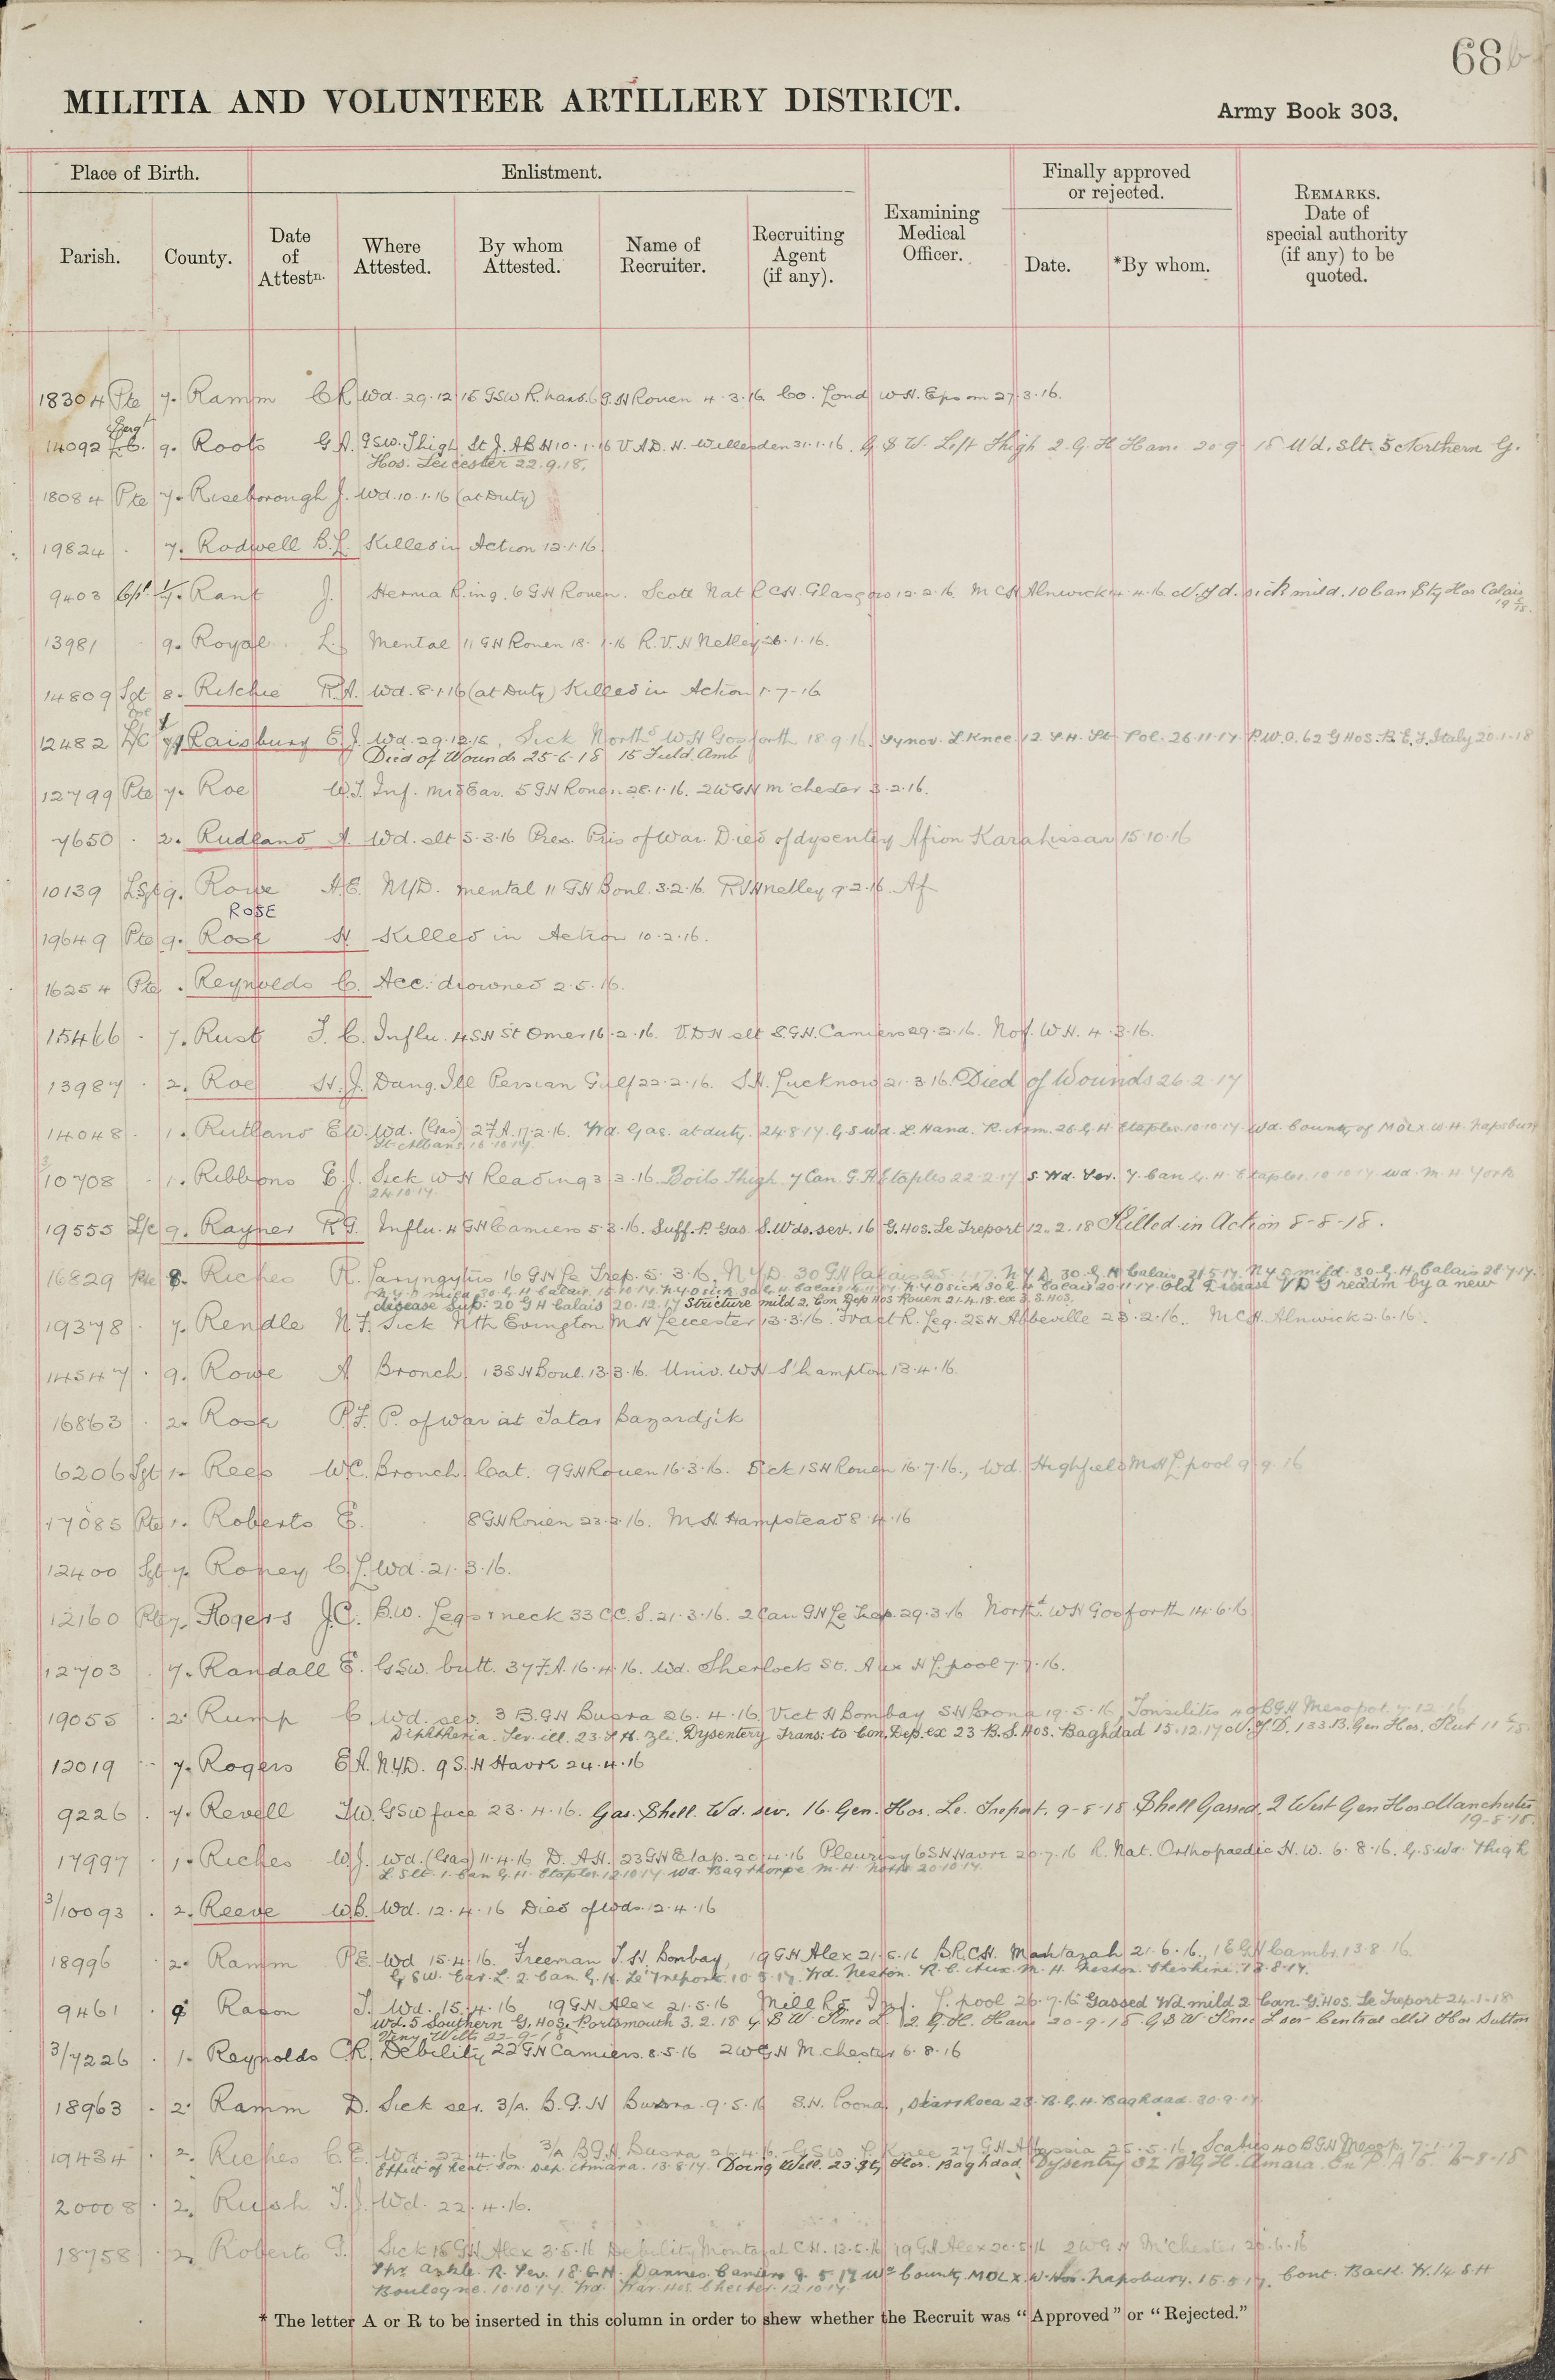 68b
MILITIA AND VOLUNTEER ARTILLERY DISTRICT.
Army Book 303.
Place of Birth.
Enlistment.
Finally approved or rejected.
Parish.
County.
Date of Attestn.
Where Attested.
By whom Attested.
Name of Recruiter.
Recruiting Agent (if any).
Examining Medical Officer.
Date.
*By whom.
REMARKS. Date of special authority (if any) to be quoted.
18304 Pte 7. Ramm C R Wd. 29.12.15 GSW R. hand. 6 G.H Rouen 4.3.16 Co. Lond W.H. Epsom 27.3.16.
Sergt
14092 L.C. 9. Roots G A. GSW. Thigh St J. AB H 10.1.16 V A D. H. Willesden 31.1.16. G S W. Left Thigh 2. G. H. Havre 20-9-18 Wd. Slt. 5 Northern G.
Hos. Leicester 22.9.18.
18084 Pte 7. Riseborough J. Wd. 10.1.16 (at Duty)
19824 . 7. Rodwell B.L. Killed in Action 12.1.16.
9403 Cpl 1/7. Rant J. Hernia R. ing. 6 G H Rouen. Scott Nat R C H. Glasgow 12.2.16. M C H Alnwick 4.4.16. N.Y.D. sick mild. 10 Can Sty Hos Calais
13981 9. Royal L. Mental 11 G H Rouen 18.1.16 R.V.H Netley 26.1.16.
14809 Sgt 8. Ritchie R.A. Wd. 8.1.16 (at Duty) Killed in Action 1-7-16
12482 L/C 7 Raisbury E.J. Wd. 29.12.15, Sick Northd W.H Gosforth 18.9.16. Synov. L. Knee. 12 S.H. St Pol. 26.11.17 P.W.O. 62 G Hos. B.E.F. Italy 20.1.18
Died of Wounds 25-6-18 15 Field Amb
12799 Pte 7. Roe W.J. Inf. Mid Ear. 5 G H Rouen 28.1.16. 2 W G H M'chester 3.2.16.
7650 . 2. Rudland A. Wd. slt 5.3.16 Pres. Pris of War. Died of dysentery Afion Karahissar 15.10.16
10139 LSgt 9. Rowe A.E. NYD. Mental 11 G H Boul. 3.2.16. R V H Netley 9.2.16. Af
ROSE
19649 Pte 9. Rose H Killed in Action 10.2.16.
16254 Pte . Reynolds C. Acc: drowned 2.5.16.
15466 . 7. Rust J. C. Influ. 4 S H St Omer 16.2.16. V.D H slt S.G.H. Camiers 29.2.16. Nof. W.H. 4.3.16.
13987 . 2. Roe H.J. Dang. Ill Persian Gulf 22.2.16. S.H. Lucknow 21.3.16. Died of Wounds 26.2.17
14048 . 1. Rutland E W. Wd. (Gas) 27 A. 17.2.16. Wd. Gas. at duty. 24.8.17. G.S Wd. L. Hand. R. Arm. 26 G. H Etaples 10.10.17 Wd. County of MDLX W.H. Napsbury
St Albans 16.10.17.
3/10708 . 1. Ribbons E J. Sick W H Reading 3.3.16. Boils Thigh 7 Can. G.H Etaples 22.2.17 S. Wd. Ver. 7. Can G. H. Etaples. 10 10 17. Wd. M. H. York
24.10.17.
19555 L/C 9. Rayner R G. Influ. 4 G H Camiers 5.3.16. Suff. P. Gas. S. Wds. sev. 16 G. Hos. Le Treport 12.2.18 Killed in Action 8-8-18.
16829 Pte 8. Riches R. Laryngytis 16 G H Le Trep. 5.3.16. N Y D. 30 G H Calais 25.1.17. N Y D. 30. G H Calais 21 5 17. N.Y.D mild. 30. G. H. Calais 28.7.17.
disease Sup: 20 G H Calais 20.12.17 Stricture mild 2. Con Dep Hos Rouen 21.4.18.
19378 . 7. Rendle N F. Sick Nth Evington M H Leicester 13.3.16. Fract R. Leg. 2 S H Abbeville 23.2.16. M C H. Alnwick 2.6.16.
14547 . 9. Rowe A Bronch 13 S H Boul. 13.3.16. Univ. W H S'hampton 13.4.16.
16863 . 2. Rose P.F. P. of War at Tatar Bazardjik
6206 Sgt 1. Rees W C. Bronch Cat. 9 G H Rouen 16.3.16. Sick 1 S H Rouen 16.7.16., Wd. Highfield M H L.pool 9.9.16
17085 Pte 1. Roberts E. 8 G H Rouen 22.3.16. M H Hampstead 8.4.16
12400 Sgt 7. Roney C L. Wd. 21.3.16.
12160 Pte 7. Rogers J.C. B.W. Legs & neck 33 C C. S. 21.3.16. 2 Can G H Le Trep. 29.3.16 Northd. W H Gosforth 14.6.16
12703 . 7. Randall E. G S W. butt. 37 F.A. 16.4.16. Wd. Sherlock St. Aux H L.pool 7.7.16.
19055 . 2. Rump C. Wd. sev. 3 B.G H Busra 26.4.16. Vict H Bombay S H Poona 19.5.16, Tonsilitis 40 B G H Mesopot. 7.12.16
Diphtheria. Ser. ill. 23. S H. Dysentery Trans: to Con. Dep. ex 23 B. S. Hos. Baghdad 15.12.17 N.Y.D. 133 B. Gen Hos. Kut
12019 . 7. Rogers E A. N Y D. 9 S. H Havre 24.4.16
9226 . 7. Revell F W. G S W face 23.4.16. Gas. Shell. Wd. sev. 16. Gen. Hos. Le. Treport. 9-8-18. Shell Gassed. 2 West Gen Hos Manchester
19-8-18.
17997 . 1. Riches W J. Wd. (Gas) 11.4.16 D. A H. 23 G H Etap. 20.4.16 Pleurisy 6 S H Havre 20.7.16 R. Nat. Orthopaedic H. W. 6.8.16. G.S Wd. Thigh
L Slt. 1. Can G. H. Etaples. 12 10 17. Wd. Bagthorpe M. H. Notts 20 10 17.
3/10093 . 2. Reeve W B. Wd. 12.4.16 Died of Wds. 12.4.16
18996 . 2. Ramm P E. Wd 15.4.16. Freeman T. H. Bombay, 19 G H Alex 21.5.16 B.R.C H. Montazah 21.6.16., 1 E G H Cambr. 13.8.16.
G. S W. Ear. L. 2. Can. G. H. Le Treport. 10.8.17. Wd. Neston. R. C. Aux. M. H. Neston. Cheshire. 18.8.17.
9461 . 9 Rason J. Wd. 15.4.16 19 G H Alex 21.5.16 Mill Rd Inf. L.pool 26.7.16 Gassed Wd. mild 2 Can. G. Hos. Le Treport 24-1-18
Wd. 5 Southern G. Hos. Portsmouth 3.2.18 G S W Knee L. 2 G. H. Havre 20-9-18. G S W Knee L Central Mil Hos Sutton
Veny, Wilts 22-9-18
3/7226 . 1. Reynolds C R. Debility 22 G H Camiers. 8.5.16 2 W G H M.chester 6.8.16
18963 . 2. Ramm D. Sick ser. 3/A. B. G. H Busra. 9.5.16 S.H. Poona, Diarrhoea 23. B. G. H. Baghdad. 30.9.17.
19434 . 2. Riches C. E. Wd. 22.4.16 3/A B G H Busra 26.4.16. G S W. L. Knee 27 G H Abbassia 25.5.16, Scabies 40 B G H Mesop. 7.1.17
Effect of Heat. Con. Dep. Amara. 13.8.17. Doing Well. 23. Sty Hos. Baghdad, Dysentry 32 B G H. Amara. 6-8-18
20008 . 2. Rush T. J. Wd. 22.4.16.
18758 . 2. Roberts P. Sick 15 G H Alex 3.5.16 Debility Montazah C H. 13.5.16 19 G H Alex 20.5.16 2 W G H M'chester 26.6.16
Ankle. R. Sev. 18. G. H. Dannes Camiers 9.5.17 Wd County MDLX. W. Hos. Napsbury. 15.5.17. Cont. Back. W. 14 S H
Boulogne. 10 10 17. Wd. War. Hos. Chester. 12 10 17.
* The letter A or R to be inserted in this column in order to shew whether the Recruit was “Approved” or “Rejected.”